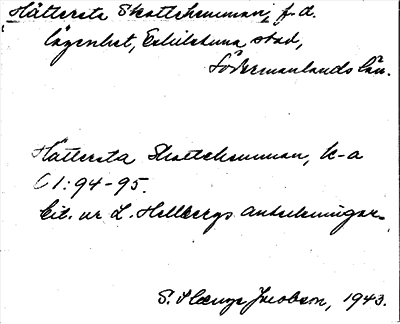 Hättersta Skattehemman, f. d.
lägenhet, Eskilstuna stad,
Södermanlands län.
Hättersta Skattehemman, k-a
C I:94-95.
Cit. ur L. Hellbergs anteckningar.
S. Jacobson, 1943.